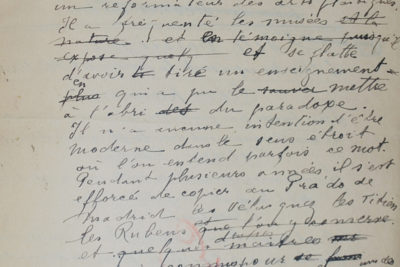 un réformateur des arts plastiques.
Il a fréquenté les musées et la
nature. ! et en témoigne puisqu'il
expose et se flatte
d'avoir tiré un enseignement
en plus qui a pu le sauver mettre
à l'abri des du paradoxe.
Il n'a aucune intention d'être
moderne dans le sens étroit
où l'on entend parfois ce mot.
Pendant plusieurs années il s'est
efforcé de copier au Prado de
Madrid les Vélasquez, les Titien
les Rubens que l'on y conserve
et quelques d'autres maîtres